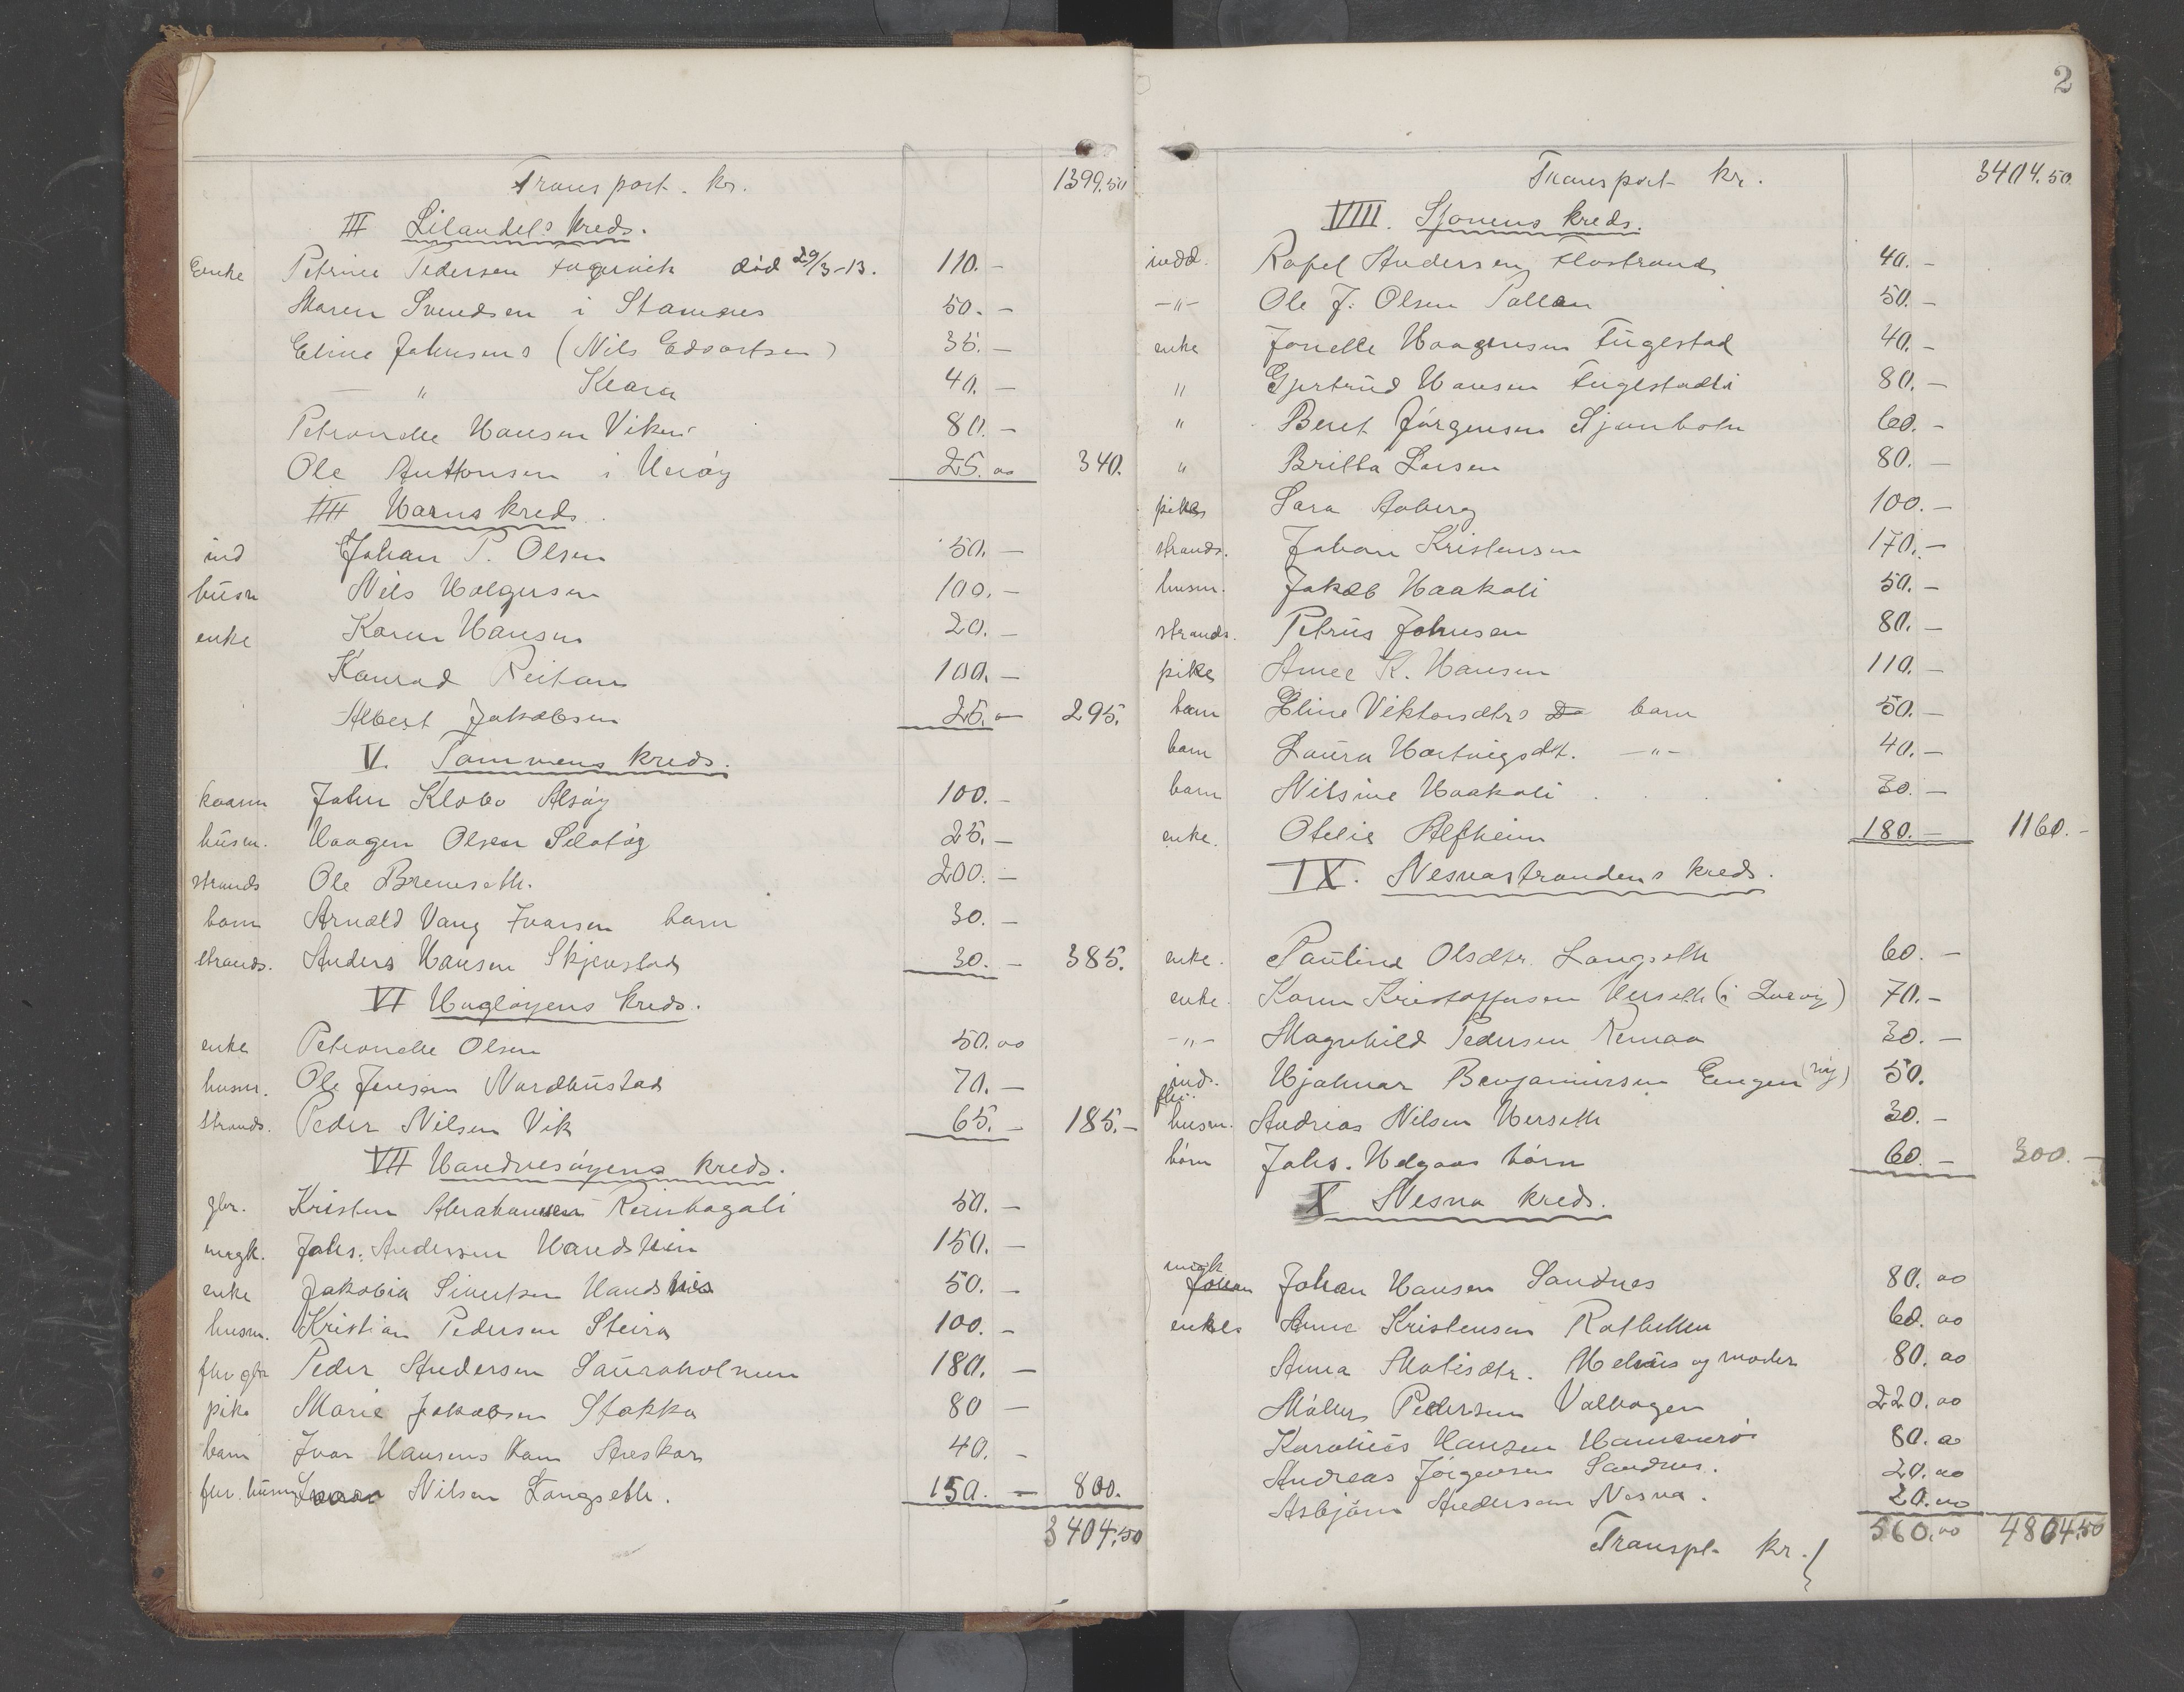 Transport. kr. 1399.50
III Lilandets kreds.
Enke Petrine Pedersen Fagervik död 29/3-13. 110. –
Maren Svendsen i Stamnes 50. –
Eline Johnsens (Nils Edvartsen) 35. –
– " Klara 40. –
Petronelle Hansen Viken 80. –
Ole Anttonsen i Meröy 25.00 340.
IIII Havns kreds.
ind Johan P. Olsen 50. –
husm Nils Holgersen 100. –
enke Karen Hansen 20. –
Konrad Reitan 100. –
Albert Jakobsen 25. – 295.
V. Tommens kreds.
kaarm John Klobo Alsöy 100. –
husm. Haagen Olsen Selotöy 25. –
strands Ole Bremseth. 200. –
barn Arnold Vang Ivarsen barn 30. –
strands. Anders Hansen Skjevstad 30. – 385.
VI Huglöyens kreds.
enke Petronelle Olsen 50.00
husm. Ole Jensen Nordhustad 70. –
strands. Peder Nilsen Vik 65. – 185. –
VII Handnesöyens kreds.
gbr. Kristen Abrahamsen Reinhagali 50. –
ungk. Johs. Andersen Handstein 150. –
enke Jakobia Sivertsen Handsnes 50. –
husm. Kristian Pedersen Steira 100. –
fhv gbr Peder Andersen Sauraholmen 180. –
pike Marie Jakobsen Stokka 80 –
barn Ivar Hansens barn Areskar 40. –
fhv. husm Nilsen Langseth. 150. – 800.
3404.50
2
Transport kr. 3404.50
VIII. Sjonens kreds.
indd. Rafel Andersen Flostrand 40. –
–"– Ole J. Olsen Pallan 50. –
enke Jonelle Haagensen Fuglestad 40. –
" Gjertrud Hansen Fuglestadli 80. –
" Beret Jörgensen Sjonbotn 60. –
" Britta Larsen 80. –
pike Sara Aaberg 100. –
strands. Johan Kristensen 170. –
husm. Jakob Haakali 50. –
strands. Petrus Johnsen 80. –
pike Anne K. Hansen 110. –
barn Eline Viktorsdtrs barn 50. –
barn Laura Hartvigsdt. –"– 40. –
barn Nilsine Haakali 30. –
enke. Otelie Alfheim 180. – 1160. –
IX. Nesnastrandens kreds.
enke. Pauline Olsdtr. Langseth 60. –
enke. Karen Kristoffersen Herseth (i Luröy) 70. –
–"– Magnhild Pedersen Remaa 30. –
ind. Hjalmar Benjaminsen Engen (ny) 50.
fhv.
husm. Andreas Nilsen Herseth 30. –
börn Johs. Helgaas börn 60. – 300. –
X Nesna kreds.
ungk
Johan Johan Hansen Sandnes 80.00
enke Anne Kristensen Rathellen 60.00
Anna Matisdtr. Melnes og moder 80.00
Möllers Pedersen Valhagen 220.00
Karolius Hansen Hammerö 80.00
Andreas Jörgensen Sandnes. 20.00
Asbjörn Andersen Nesna. 20.00
Transpt kr. 560.00 4864.50